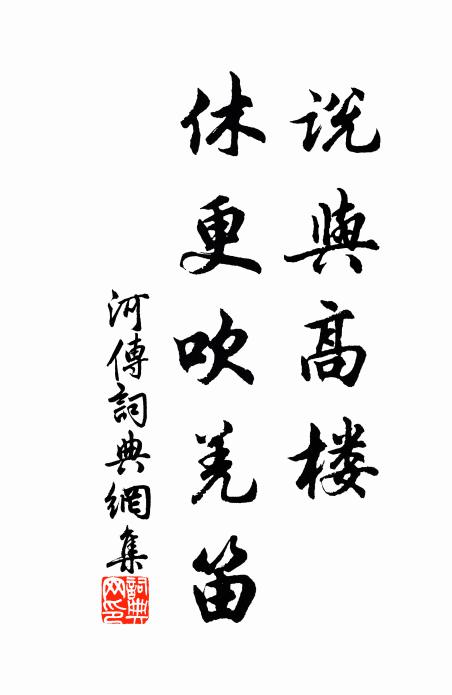 说與高楼
休更吹羌笛
河傳詞典網集
詞典
网印